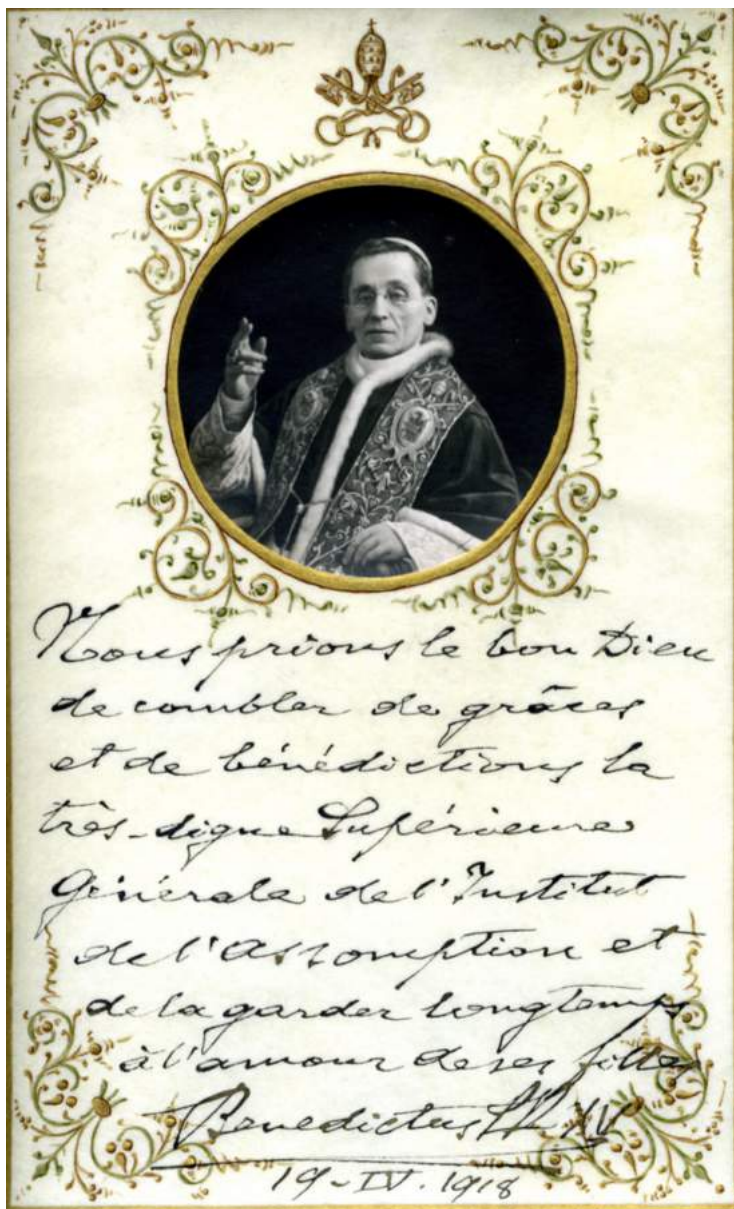 Nous prions le bon Dieu
de combler de grâces
et de bénédictions la
très-digne Supérieure
Générale de l'Institut
de l'Assomption et
de la garder longtemps
à l'amour de ses filles
Benedictus PP XV
19-IV.1918